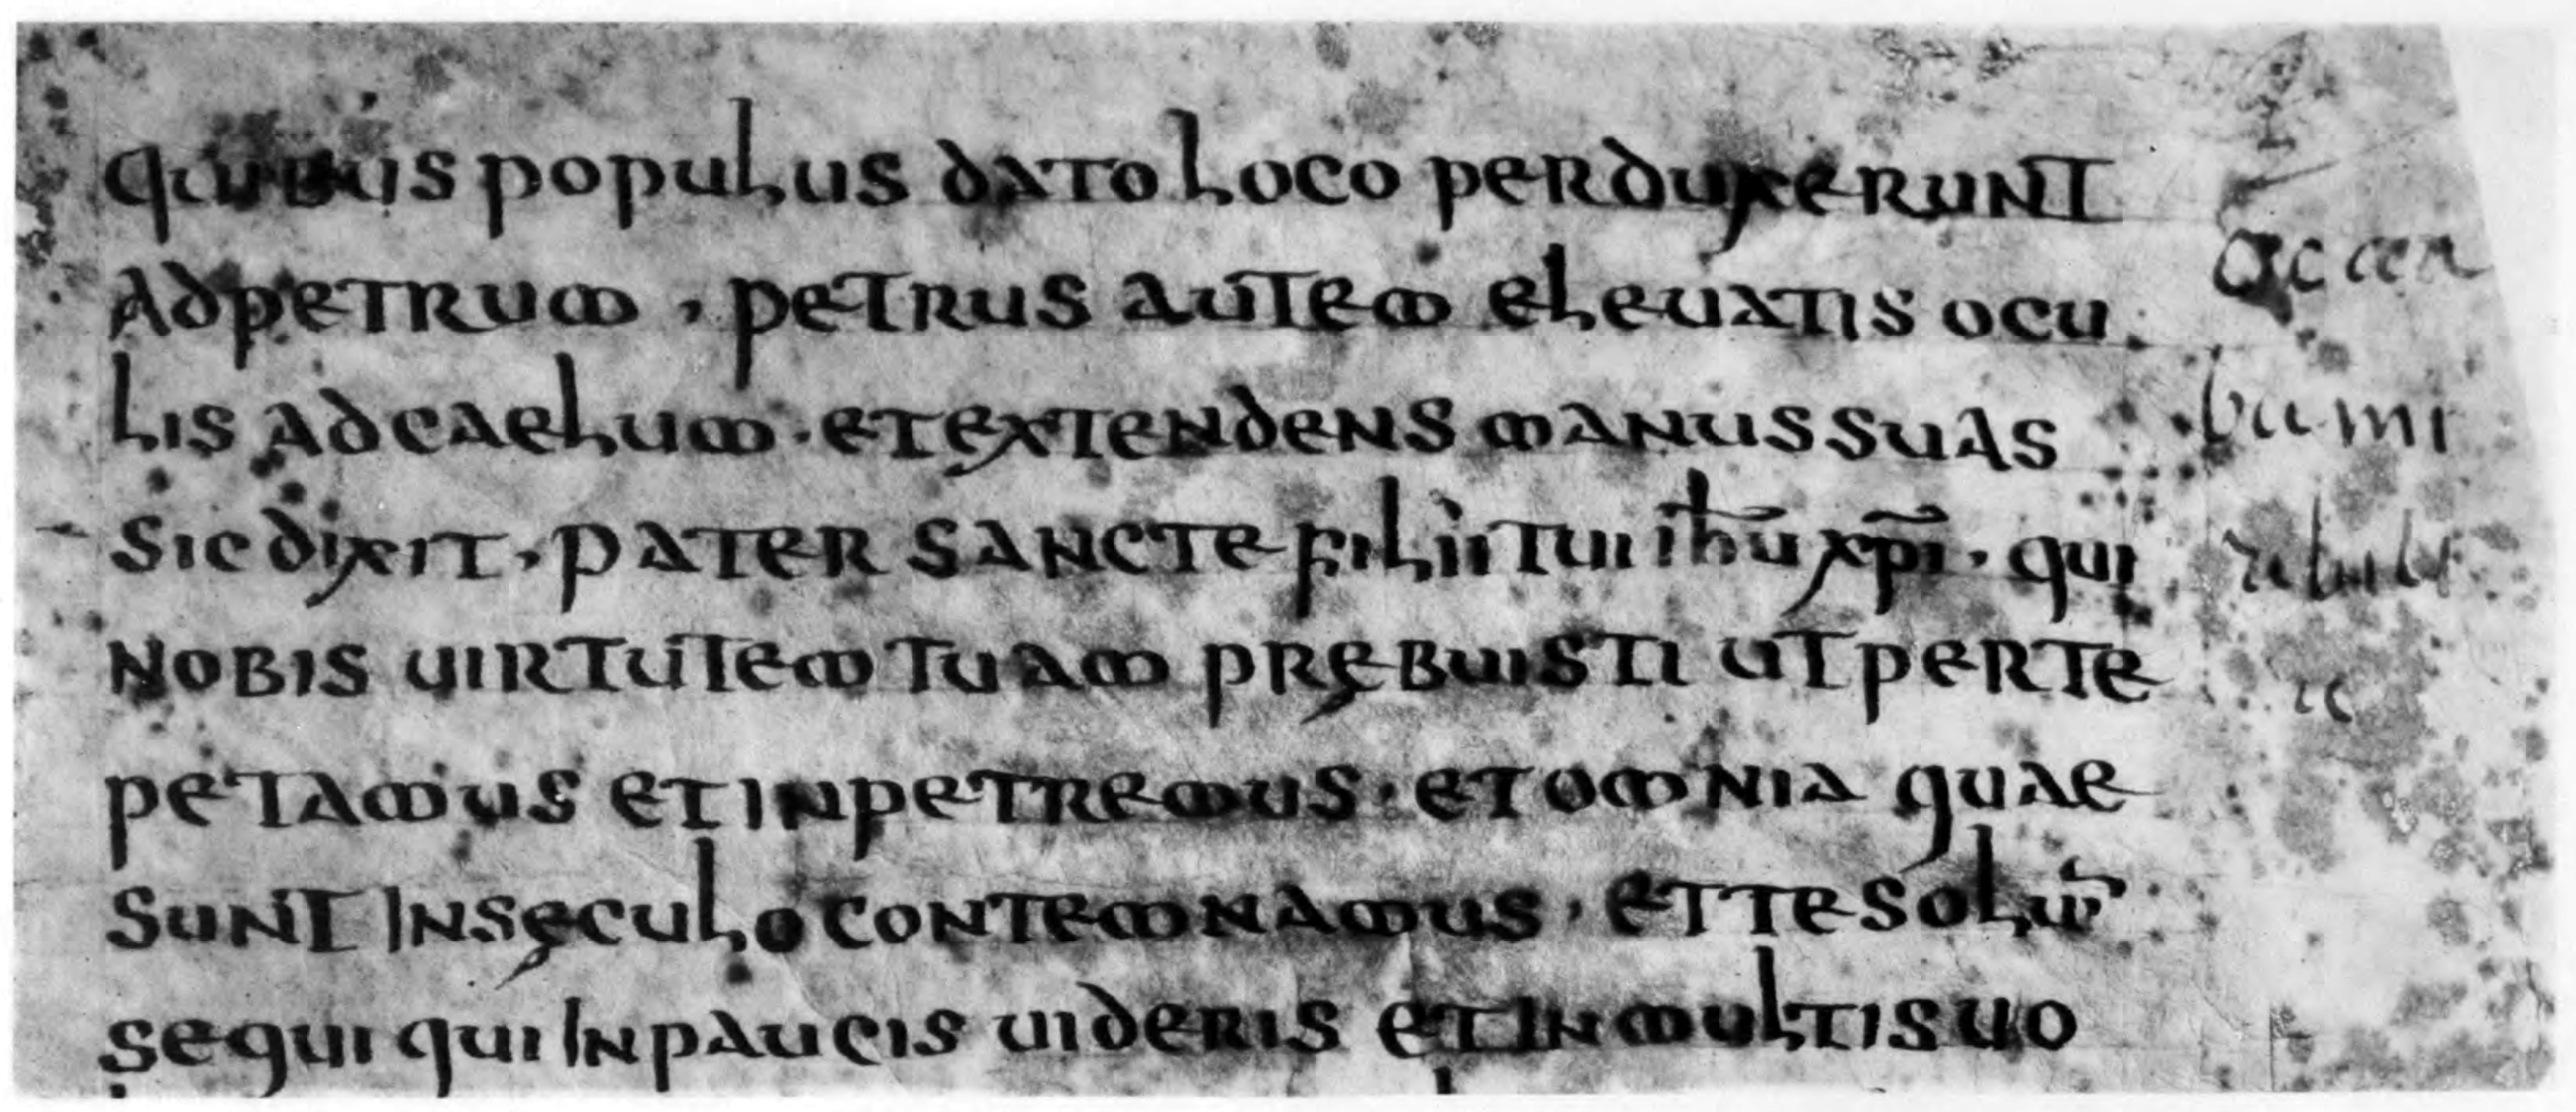 quibus populus dato loco perduxerunt
ad petrum, petrus autem eleuatis ocu
lis ad caelum · et extendens manus suas
sic dixit, pater sancte filii tui ihū xp̄i, qui
nobis uirtutem tuam prębuisti ut per te
petamus et inpetremus · et omnia quae
sunt in sęculo contemnamus, et te solū
sequi qui in paucis uideris et in multis uo